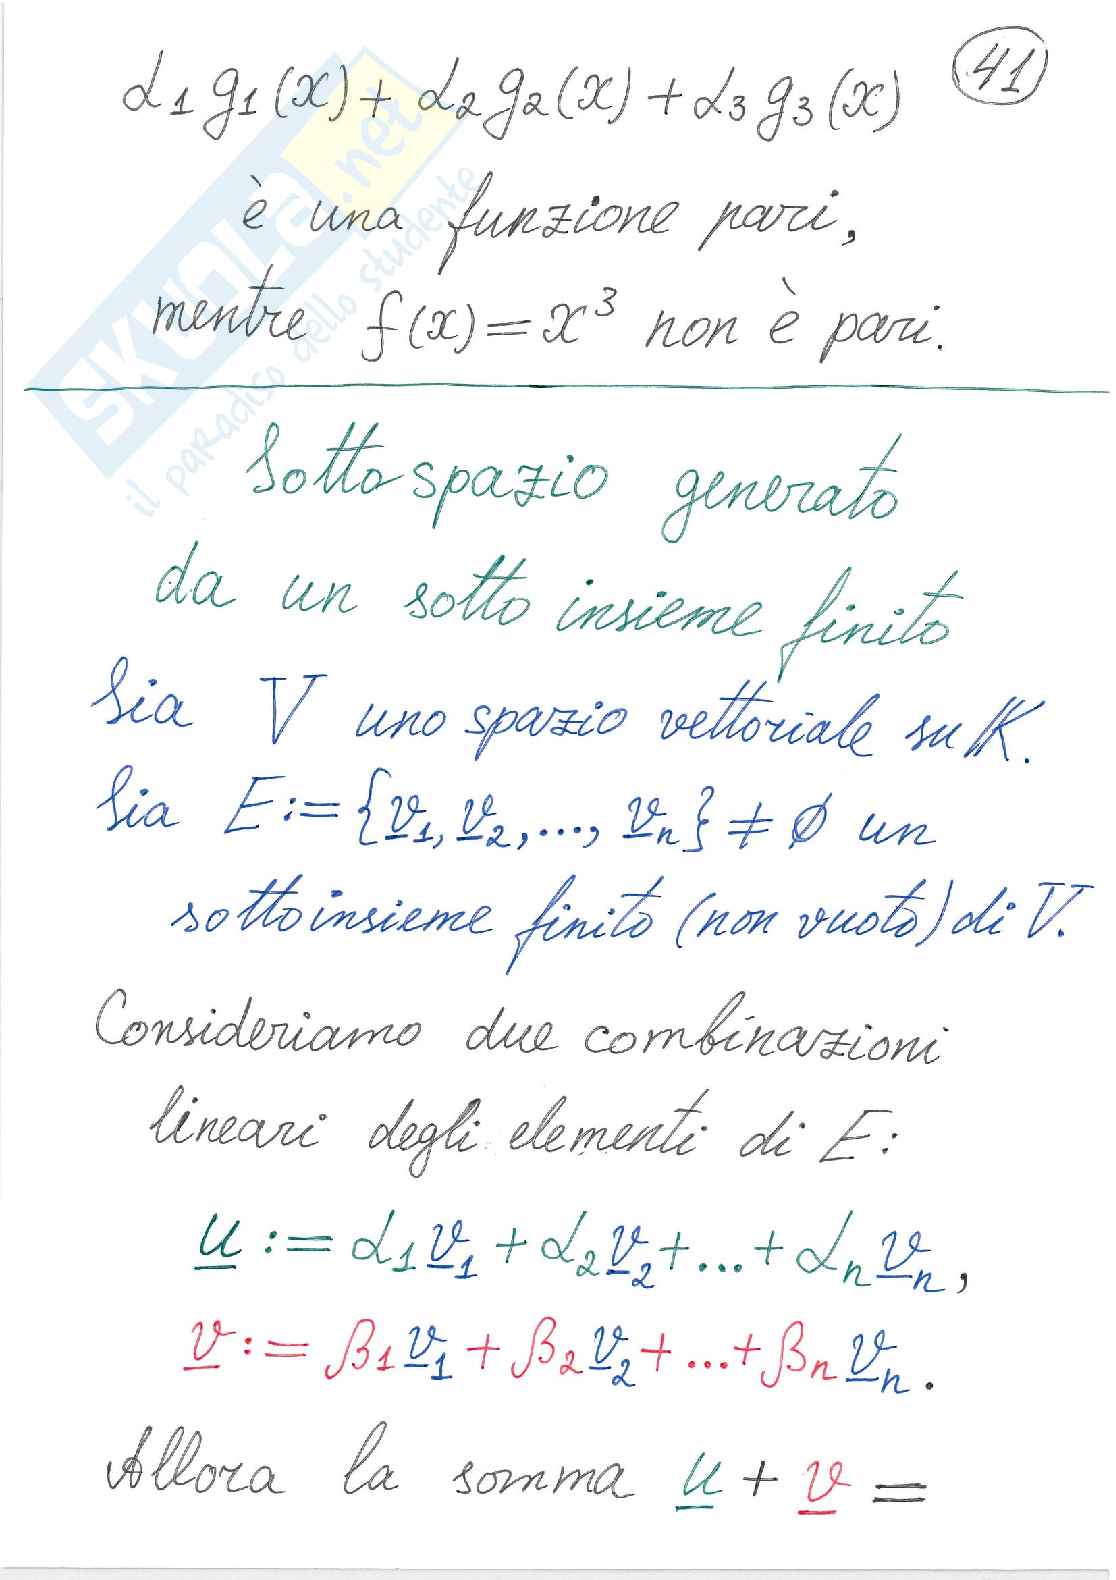 41
α₁g₁(x) + α₂g₂(x) + α₃g₃(x)
è una funzione pari,
mentre f(x) = x³ non è pari.
Sottospazio generato
da un sottoinsieme finito
Sia V uno spazio vettoriale su K.
Sia E := {v₁, v₂, ..., vₙ} ≠ ∅ un
sottoinsieme finito (non vuoto) di V.
Consideriamo due combinazioni
lineari degli elementi di E:
u := α₁v₁ + α₂v₂ + ... + αₙvₙ,
v := β₁v₁ + β₂v₂ + ... + βₙvₙ.
Allora la somma u + v =
SKUOLA.net
il paradiso dello studente